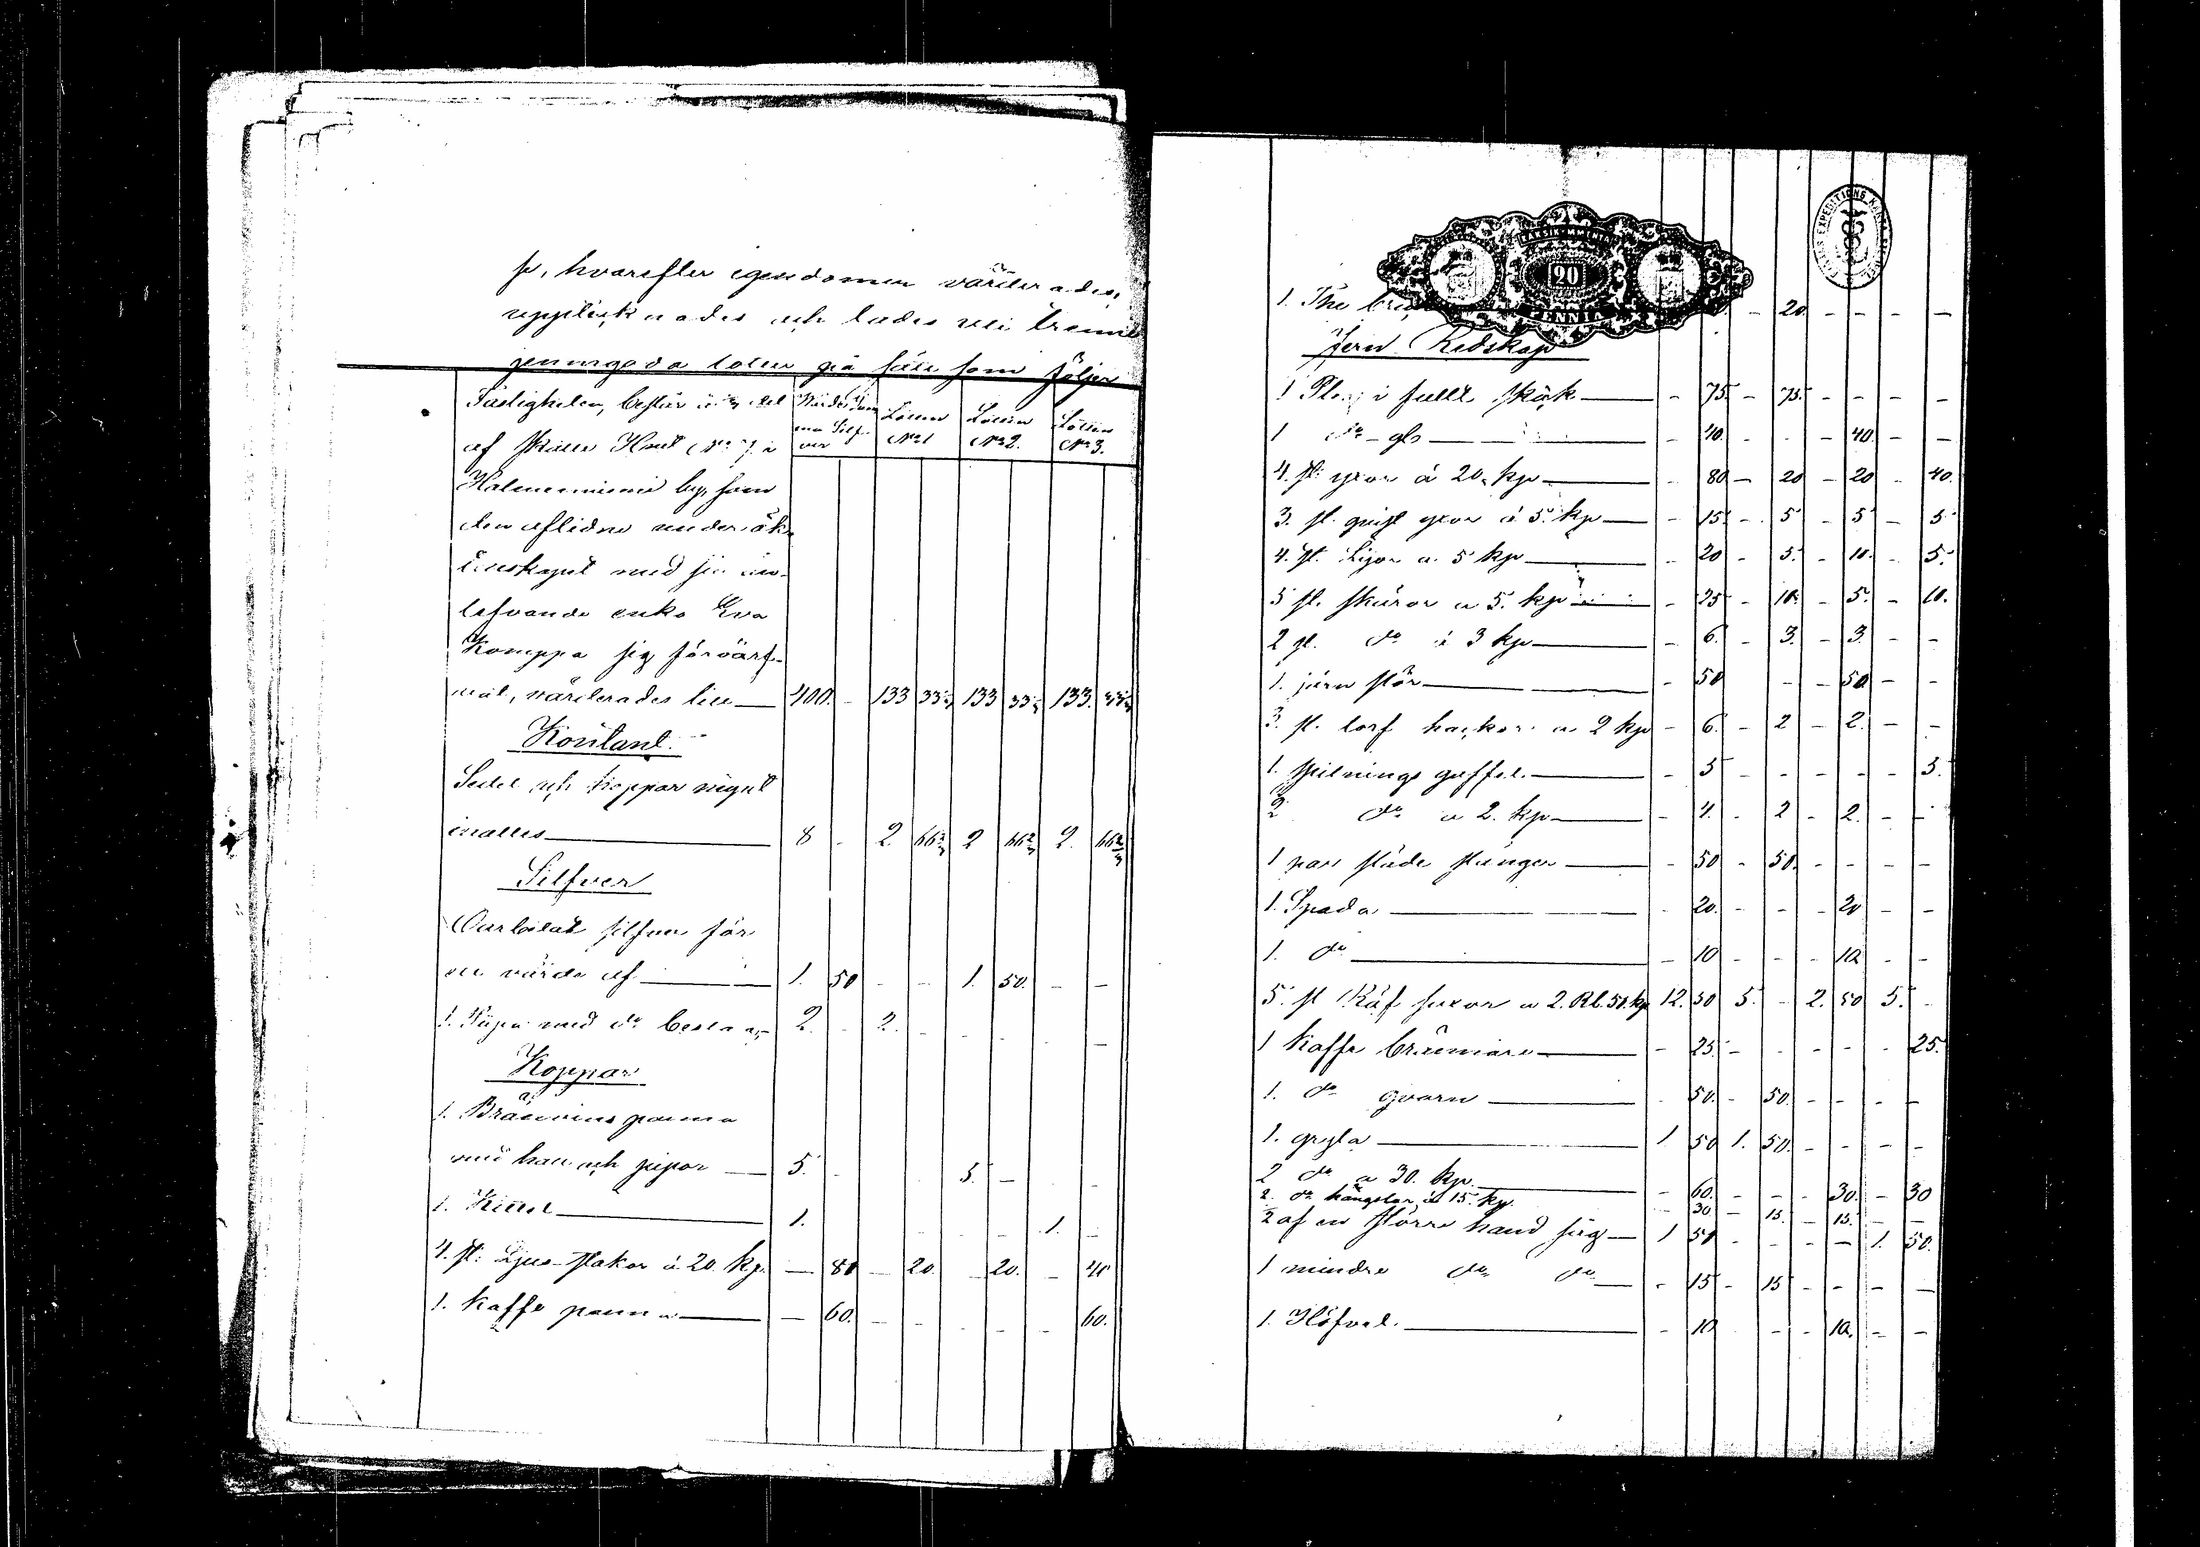 hvarefter egendomen värderades,
upptecknades och lades uti trenne
jemngoda lotter på sätt som följer
Fastigheten, består del
af Skatte No 7 i
Lotten No 1
Lotten No 2.
Lotten No 3.
by, som
den aflidne under äk-
tenskapet med sin
lefvande enka Eva
Komppa sig förvärf-
vat, värderades till 400. - 133 33⅓ 133 33⅓ 133. 33⅓
Kontant.
Sedel och koppar mynt
inalles 8 - 2. 66⅔ 2 66⅔ 2. 66⅔
Silfver
Oarbetat silfver för
en värde af 1. 50 - - 1. 50. - -
1. Pipa med do 2. - 2. - - - -
Koppar
1. Bränvins panna
med hatt och pipor 5. - 5. - - -
1. Kittel 1. - - - - 1. -
4. st: Ljus-stakar á 20. kp. - 80 - 20. - 20. - 40
1. Kaffe panna - 60. - - - - - 60.
20
PENNIÄ
1. The - 20. - - - -
Jern Redskap
1 i fullt skick - 75. - 75. - - - -
1 do - - 40. - - - 40. - -
4. st: yxor á 20. kp - 80 - 20 - 20 - 40.
3. st. qvist yxor á 5. kp - 15. - 5 - 5 - 5
4. st. Lijor a 5 kp - 20 - 5. - 10. - 5.
5 st. skäror a 5. kp - 25 - 10. - 5. - 10.
2 st. do á 3 kp - 6. - 3. - 3. - -
1. järn stör - 50 - - - 50 - -
3. st. torf hackor a 2 kp - 6. - 2 - 2. - -
1. gaffel - 3 - - - - - 3.
2 do a 2. kp - 4. - 2 - 2. - -
1 par stänger - 50 - 50. - - - -
1. Spada - 20. - - - 20 - -
1. do - 10 - - - 10 - -
5. st a 2. Rb. 50. kp 12. 50 5. - 2. 50 5. -
1 Kaffe brännare - 25. - - - - - 25.
1. do qvarn - 50. - 50. - - - -
1. gryta 1 50 1. 50. - - - -
2 do a 30. kp. - 60. - - - 30. - 30
2. do a 15. kp. - 30 - 15. - 15. - -
2 af en större hand såg 1 50 - - - - 1. 50.
1 mindre do do - 15 - 15 - - - -
1. Höfvel. - 10 - - - 10. - -